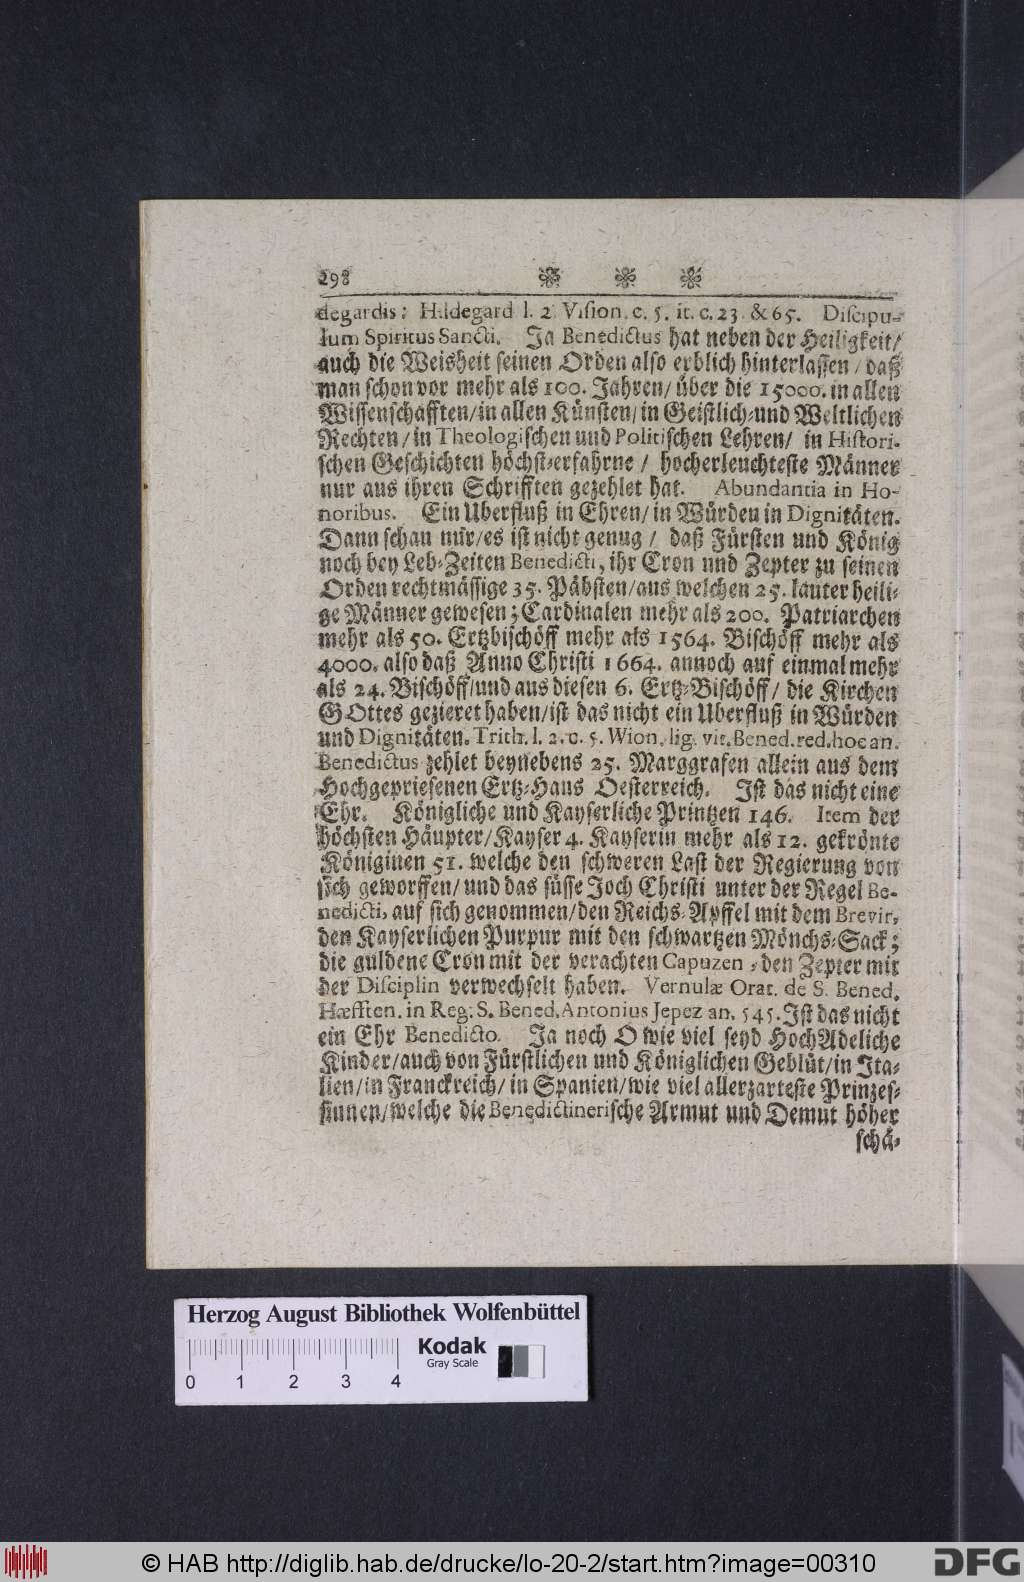 298
degardis: Hildegard l. 2 Vision. c. 5. it. c. 23 & 65. Discipu-
lum Spiritus Sancti. Ja Benedictus hat neben der Heiligkeit/
auch die Weisheit seinen Orden also erblich hinterlassen / daß
man schon vor mehr als 100. Jahren/ über die 15000. in allen
Wissenschafften/in allen Künsten/in Geistlich-und Weltlichen
Rechten/in Theologischen und Politischen Lehren/ in Histori-
schen Geschichten höchst-erfahrne / hocherleuchteste Männer
nur aus ihren Schrifften gezehlet hat. Abundantia in Ho-
noribus. Ein Uberfluß in Ehren/in Würden in Dignitäten.
Dann schau nur/es ist nicht genug / daß Fürsten und König
noch bey Leb-Zeiten Benedicti, ihr Cron und Zepter zu seinen
Orden rechtmässige 35. Päbsten/aus welchen 25. lauter heili-
ge Männer gewesen; Cardinalen mehr als 200. Patriarchen
mehr als 50. Ertzbischöff mehr als 1564. Bischöff mehr als
4000. also daß Anno Christi 1664. annoch auf einmal mehr
als 24. Bischöff/und aus diesen 6. Ertz-Bischöff/ die Kirchen
GOttes gezieret haben/ist das nicht ein Uberfluß in Würden
und Dignitäten. Trith. l. 2. c. 5. Wion. lig. vit. Bened. red. hoc an.
Benedictus zehlet beynebens 25. Marggrafen allein aus dem
Hochgepriesenen Ertz-Haus Oesterreich. Ist das nicht eine
Ehr. Königliche und Kayserliche Printzen 146. Item der
höchsten Häupter/Kayser 4. Kayserin mehr als 12. gekrönte
Königinen 51. welche den schweren Last der Regierung von
sich geworffen/ und das süsse Joch Christi unter der Regel Be-
nedicti, auf sich genommen/den Reichs-Apffel mit dem Brevir,
den Kayserlichen Purpur mit den schwartzen Mönchs-Sack;
die guldene Cron mit der verachten Capuzen, den Zepter mit
der Disciplin verwechselt haben. Vernulæ Orat. de S. Bened.
Hæfften. in Reg. S. Bened. Antonius Jepez an. 545. Ist das nicht
ein Ehr Benedicto. Ja noch O wie viel seyd HochAdeliche
Kinder/auch von Fürstlichen und Königlichen Geblüt/in Ita-
lien/in Franckreich/ in Spanien/wie viel allerzarteste Prinzes-
sinnen/welche die Benedictinerische Armut und Demut höher
schä-
Herzog August Bibliothek Wolfenbüttel
0 1 2 3 4
Kodak
Gray Scale
© HAB http://diglib.hab.de/drucke/lo-20-2/start.htm?image=00310
DFG